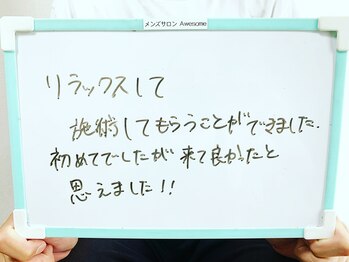 メンズサロン Awesome
リラックスして
施術してもらうことができました.
初めてでしたが来て良かったと
思えました!!